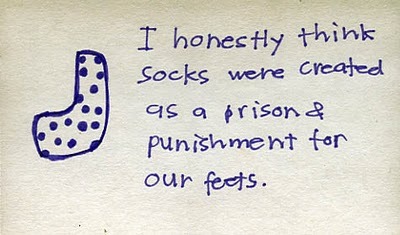 I honestly think
socks were created
as a prison &
punishment for
our feets.